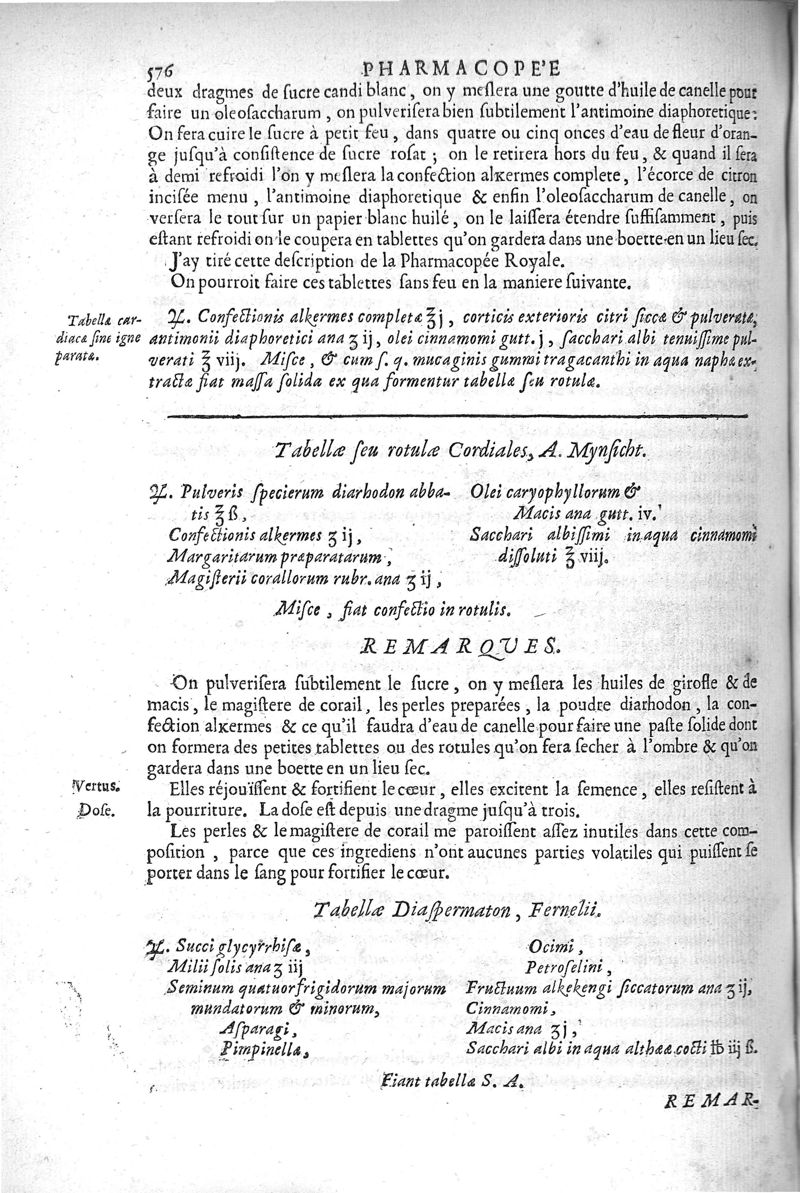 576 PHARMACOPE'E
deux dragmes de ſucre candi blanc, on y meſlera une goutte d'huile de canelle pour
faire un oleoſaccharum, on pulveriſera bien ſubtilement l'antimoine diaphoretique:
On fera cuire le ſucre à petit feu, dans quatre ou cinq onces d'eau de fleur d'oran-
ge juſqu'à conſiſtence de ſucre roſat; on le retirera hors du feu, & quand il ſera
à demi refroidi l'on y meſlera la confection alKermes complete, l'écorce de citron
inciſée menu, l'antimoine diaphoretique & enfin l'oleoſaccharum de canelle, on
verſera le tout ſur un papier blanc huilé, on le laiſſera étendre ſuffiſamment, puis
eſtant refroidi on le coupera en tablettes qu'on gardera dans une boette en un lieu ſec.
J'ay tiré cette deſcription de la Pharmacopée Royale.
On pourroit faire ces tablettes ſans feu en la maniere ſuivante.
Tabellæ car-
diacæ ſine igne
paratæ.
♃. Confectionis alkermes completæ ℥j, corticis exterioris citri ſiccæ & pulveratæ,
antimonii diaphoretici ana ʒ ij, olei cinnamomi gutt. j, ſacchari albi tenuiſſime pul-
verati ℥ viij. Miſce, & cum ſ. q. mucaginis gummi tragacanthi in aqua naphæ ex-
tractæ fiat maſſa ſolida ex qua formentur tabellæ ſeu rotulæ.
Tabellæ ſeu rotulæ Cordiales, A. Mynſicht.
♃. Pulveris ſpecierum diarhodon abba-
tis ℥ ß,
Confectionis alkermes ʒ ij,
Margaritarum præparatarum,
Magiſterii corallorum rubr. ana ʒ ij,
Olei caryophyllorum &
Macis ana gutt. iv.
Sacchari albiſſimi in aqua cinnamomi
diſſoluti ℥ viij.
Miſce, fiat confectio in rotulis.
REMARQUES.
On pulveriſera ſubtilement le ſucre, on y meſlera les huiles de girofle & de
macis, le magiſtere de corail, les perles preparées, la poudre diarhodon, la con-
fection alKermes & ce qu'il faudra d'eau de canelle pour faire une paſte ſolide dont
on formera des petites tablettes ou des rotules qu'on fera ſecher à l'ombre & qu'on
gardera dans une boette en un lieu ſec.
Vertus.
Elles réjouïſſent & fortifient le cœur, elles excitent la ſemence, elles reſiſtent à
Doſe.
la pourriture. La doſe eſt depuis une dragme juſqu'à trois.
Les perles & le magiſtere de corail me paroiſſent aſſez inutiles dans cette com-
poſition, parce que ces ingrediens n'ont aucunes parties volatiles qui puiſſent ſe
porter dans le ſang pour fortifier le cœur.
Tabellæ Diaſpermaton, Fernelii.
♃. Succi glycyrrhiſæ,
Milii ſolis ana ʒ iij
Seminum quatuor frigidorum majorum
mundatorum & minorum,
Aſparagi,
Pimpinellæ,
Ocimi,
Petroſelini,
Fructuum alkekengi ſiccatorum ana ʒ ij,
Cinnamomi,
Macis ana ʒj,
Sacchari albi in aqua althææ cocti ℔ iij ß.
Fiant tabellæ S. A.
REMAR-